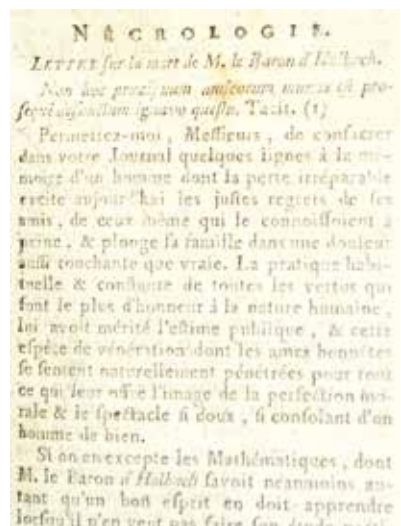 NÉCROLOGIE.
LETTRE ſur la mort de M. le Baron d'Holbach.
Non hoc præcipuum amicorum munus eſt pro-
ſequi defunctum ignavo queſtu. Tacit. (1)
Permettez-moi, Meſſieurs, de conſacrer
dans votre Journal quelques lignes à la mé-
moire d'un homme dont la perte irréparable
excite aujourd'hui les juſtes regrets de ſes
amis, de ceux même qui le connoiſſoient à
peine, & plonge ſa famille dans une douleur
auſſi touchante que vraie. La pratique habi-
tuelle & conſtante de toutes les vertus qui
font le plus d'honneur à la nature humaine,
lui avoit mérité l'eſtime publique, & cette
eſpèce de vénération dont les ames honnêtes
ſe ſentent naturellement pénétrées pour tout
ce qui leur offre l'image de la perfection mo-
rale & le ſpectacle ſi doux, ſi conſolant d'un
homme de bien.
Si on en excepte les Mathématiques, dont
M. le Baron d'Holbach ſavoit néanmoins au-
tant qu'un bon eſprit en doit apprendre
lorſqu'il n'en veut pas faire ſon